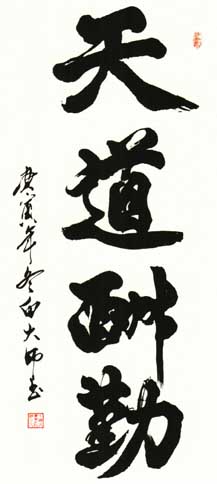 天道酬勤
庚寅年冬田大师书